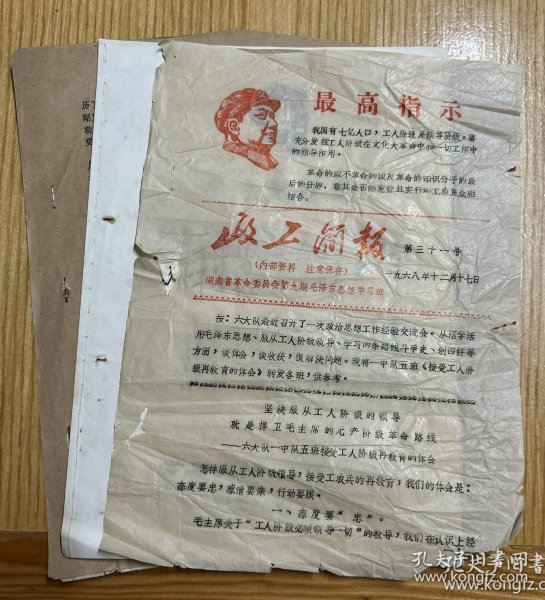 最高指示
我国有七亿人口，工人阶级是领导阶级。要
充分发挥工人阶级在文化大革命中和一切工作中
的领导作用。
革命的或不革命的或反革命的知识分子的最
后的分界，看其是否愿意并且实行和工农民众相
结合。
政工简报
第三十一号
（内部资料 注意保存）
一九六八年十二月十七日
湖南省革命委员会第九期毛泽东思想学习班
按：六大队最近召开了一次政治思想工作经验交流会。从活学活
用毛泽东思想、服从工人阶级领导、学习两条路线斗争史、创四好等
方面，谈体会，谈收获，很解决问题。现将一中队五班《接受工人阶
级再教育的体会》转发各班，供参考。
坚决服从工人阶级的领导
就是捍卫毛主席的无产阶级革命路线
——六大队一中队五班接受工人阶级再教育的体会
怎样服从工人阶级领导，接受工农兵的再教育，我们的体会是：
态度要忠，感情要亲，行动要跟。
一、态度要“忠”。
毛主席关于“工人阶级必须领导一切”的教导，我们在认识上经
孔夫子旧书网
www.kongfz.com